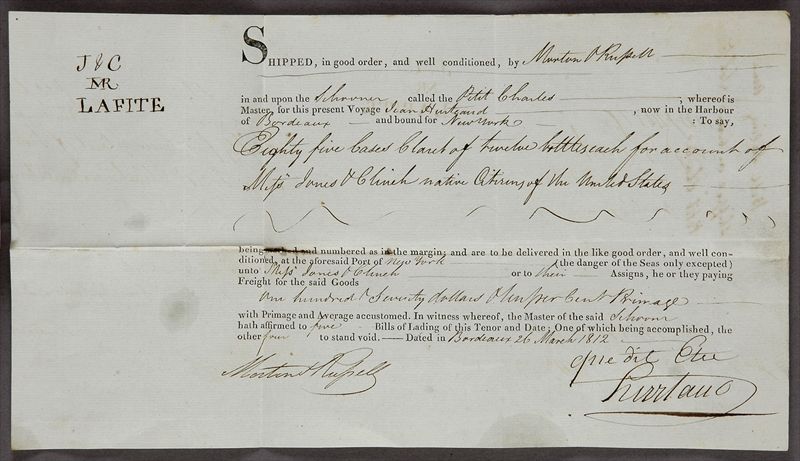 J & C
MR
LAFITE
SHIPPED, in good order, and well conditioned, by Morton & Russell
in and upon the Schooner called the Petit Charles ; whereof is
Master, for this present Voyage Jean Hurtaud , now in the Harbour
of Bordeaux and bound for New York : To say,
Eighty five Cases Claret of twelve bottles each for account of
Messrs Jones & Clinch native Citizens of the United States
being marked and numbered as in the margin; and are to be delivered in the like good order, and well con-
ditioned, at the aforesaid Port of New York (the danger of the Seas only excepted)
unto Messrs Jones & Clinch or to their Assigns, he or they paying
Freight for the said Goods
One hundred & Seventy dollars & ten per Cent Primage
with Primage and Average accustomed. In witness whereof, the Master of the said Schooner
hath affirmed to five Bills of Lading of this Tenor and Date; One of which being accomplished, the
other four to stand void. — Dated in Bordeaux 26 March 1812
que dit Etre
Morton & Russell
Hurtaud